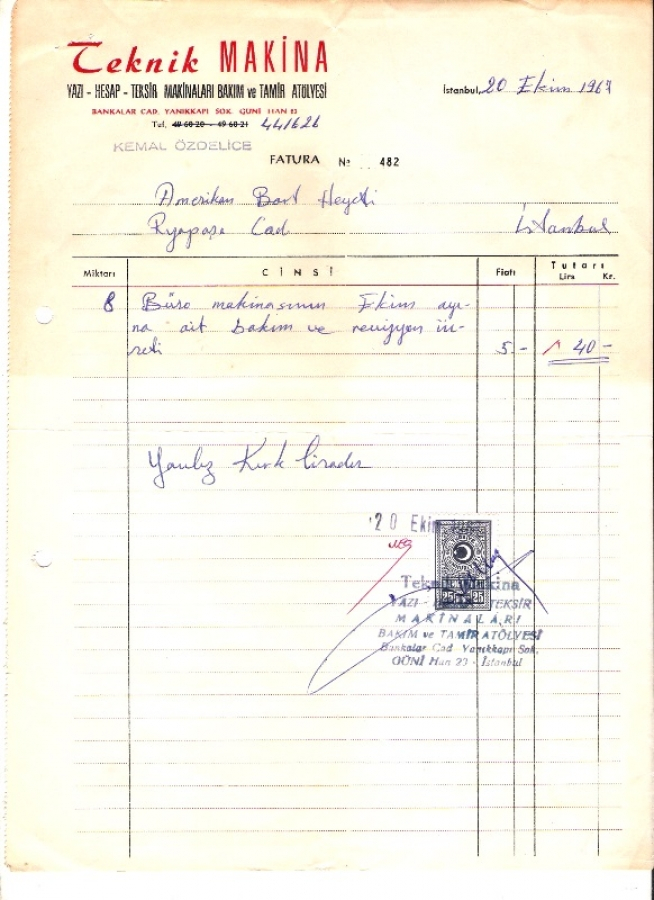 Teknik MAKİNA
YAZI - HESAP - TEKSİR MAKİNALARI BAKIM ve TAMİR ATÖLYESİ
BANKALAR CAD. YANIKKAPI SOK. GÜNİ HAN
Tel. 49 60 20 - 49 60 21 441626
İstanbul, 20 Ekim 1967
KEMAL ÖZDELİCE
FATURA No 482
Amerikan Bort Heyeti
Rızapaşa Cad İstanbul
Miktarı CİNSİ Fiatı Tutarı
Lira Kr.
8 Büro makinasının Ekim ayı-
na ait bakım ve revizyon üc-
reti 5 - 40 -
Yanlız Kırk liradır
20 Ekim
25 25
Teknik Makina
YAZI - TEKSİR
MAKİNALARI
BAKIM ve TAMİR ATÖLYESİ
Bankalar Cad Yanıkkapı Sok.
GÜNİ Han 23 - İstanbul